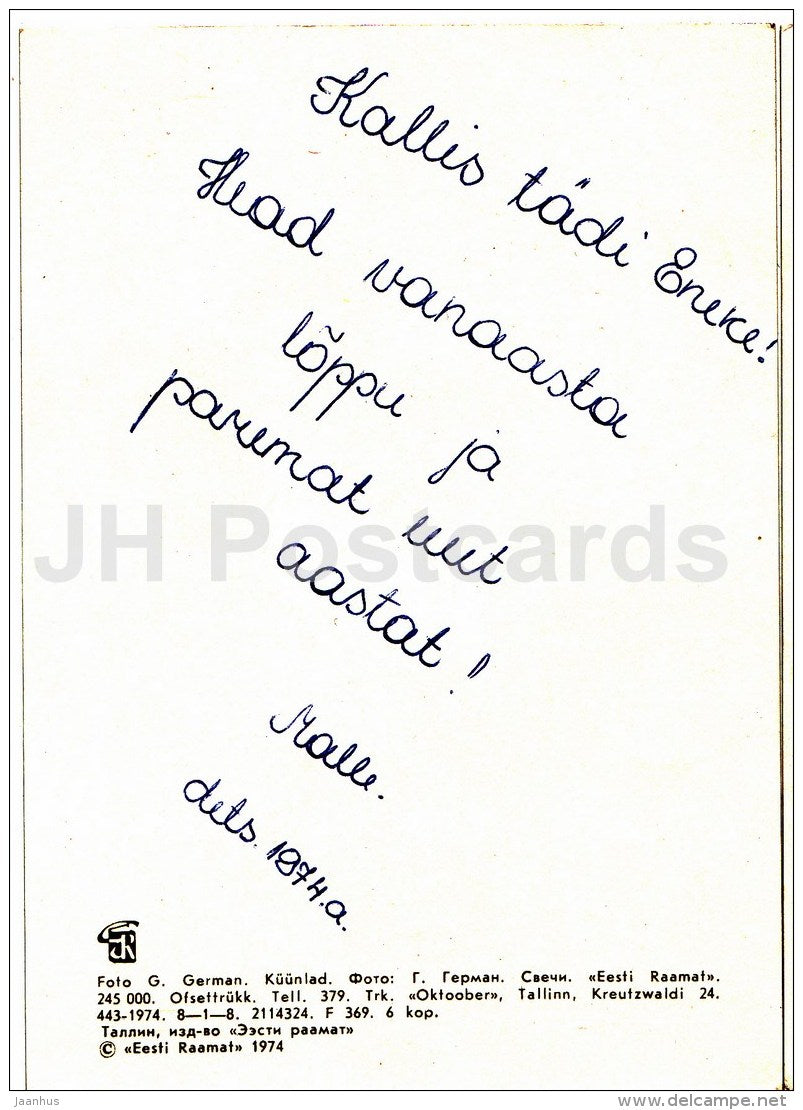 Kallis tädi Eneke!
Head vanaasta
lõppu ja
paremat uut
aastat!
Malle.
dets. 1974.a.
JH Postcards
Foto G. German. Küünlad. Фото: Г. Герман. Свечи. «Eesti Raamat».
245 000. Ofsettrükk. Tell. 379. Trk. «Oktoober», Tallinn, Kreutzwaldi 24.
443-1974. 8—1—8. 2114324. F 369. 6 kop.
Таллин, изд-во «Ээсти раамат»
© «Eesti Raamat» 1974
Jaanhus
www.delcampe.net